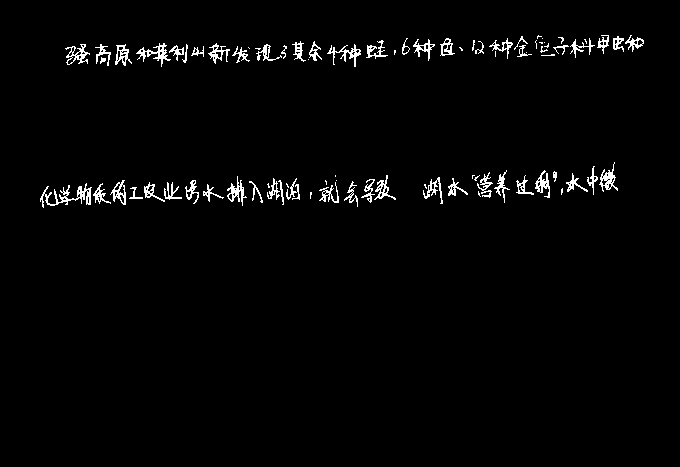 强高原和莱利州新发现了其余4种蛙，6种鱼、12种金龟子科甲虫和
化学物质的工农业污水排入湖泊，就会导致 湖水“营养过剩”，水中微